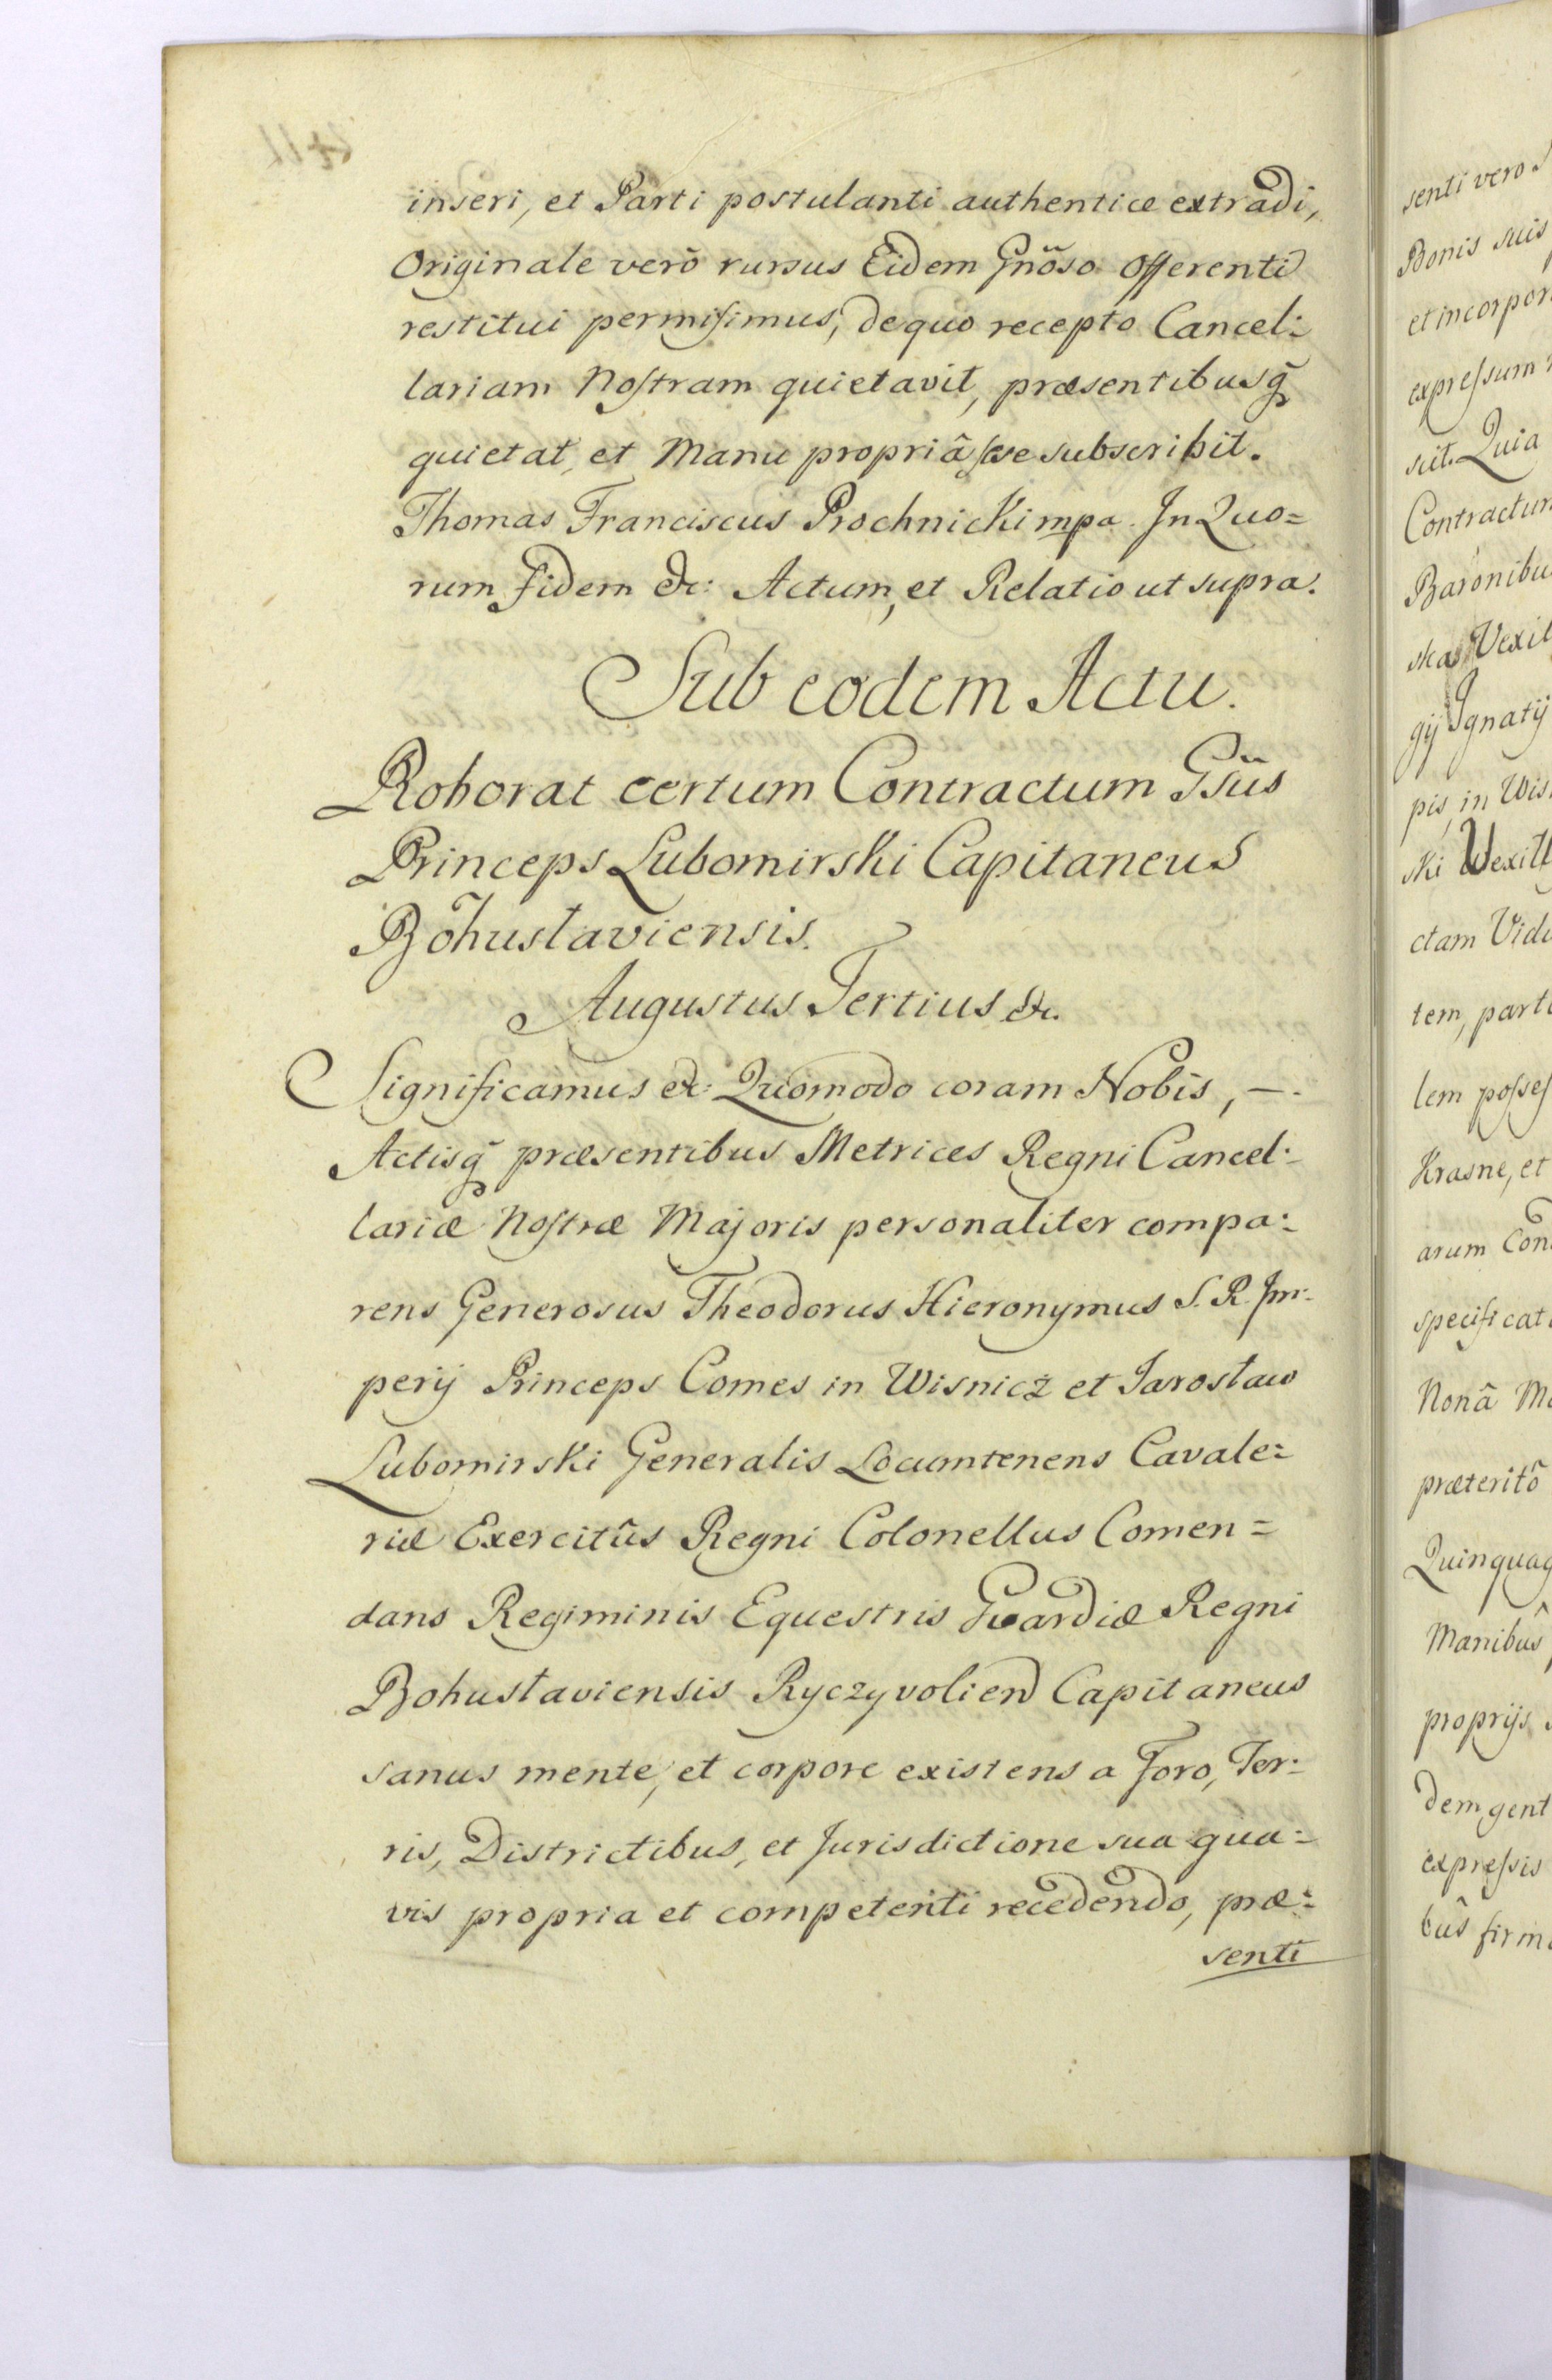 inseri, et Parti postulanti authentice extradi,
Originale verò rursus Eidem Gnõso Offerenti
restitui permisimus, de quo recepto Cancel:
lariam Nostram quietavit, præsentibusq̃
quietat, et Manu propriâ se subscribit.
Thomas Franciscus Prochnicki mpa. In Quo=
rum fidem &c: Actum, et Relatio ut supra.
Sub eodem Actu.
Roborat certum Contractum Gsũs
Princeps Lubomirski Capitaneus
Bohuslaviensis.
Augustus Tertius &c.
Significamus &c: Quomodo coram Nobis, –.
Actisq̃ præsentibus Metrices Regni Cancel:
lariæ Nostræ Majoris personaliter compa:
rens Generosus Theodorus Hieronymus S. R. Im:
perij Princeps Comes in Wisnicz et Jarosław
Lubomirski Generalis Locumtenens Cavale:
riæ Exercitûs Regni Colonellus Comen=
dans Regiminis Equestris Guardiæ Regni
Bohuslaviensis Ryczyvolien Capitaneus
sanus mente, et corpore existens a Foro, Ter:
ris, Districtibus, et Jurisdictione sua qua:
vis propria et competenti recedendo, præ:
senti
senti vero
Bonis suis
et incorpor
expressum
scit. Quia
Contractum
Baronibu
skas Vexil
gij Ignatij
pis, in Wis
ski Vexill
ctam Vidu
tem, parte
lem posses
Krasne, et
arum Con
specificat
Nonâ M
præteritô
Quinquag
Manibus
proprijs
dem gent
expressis
bûs firm